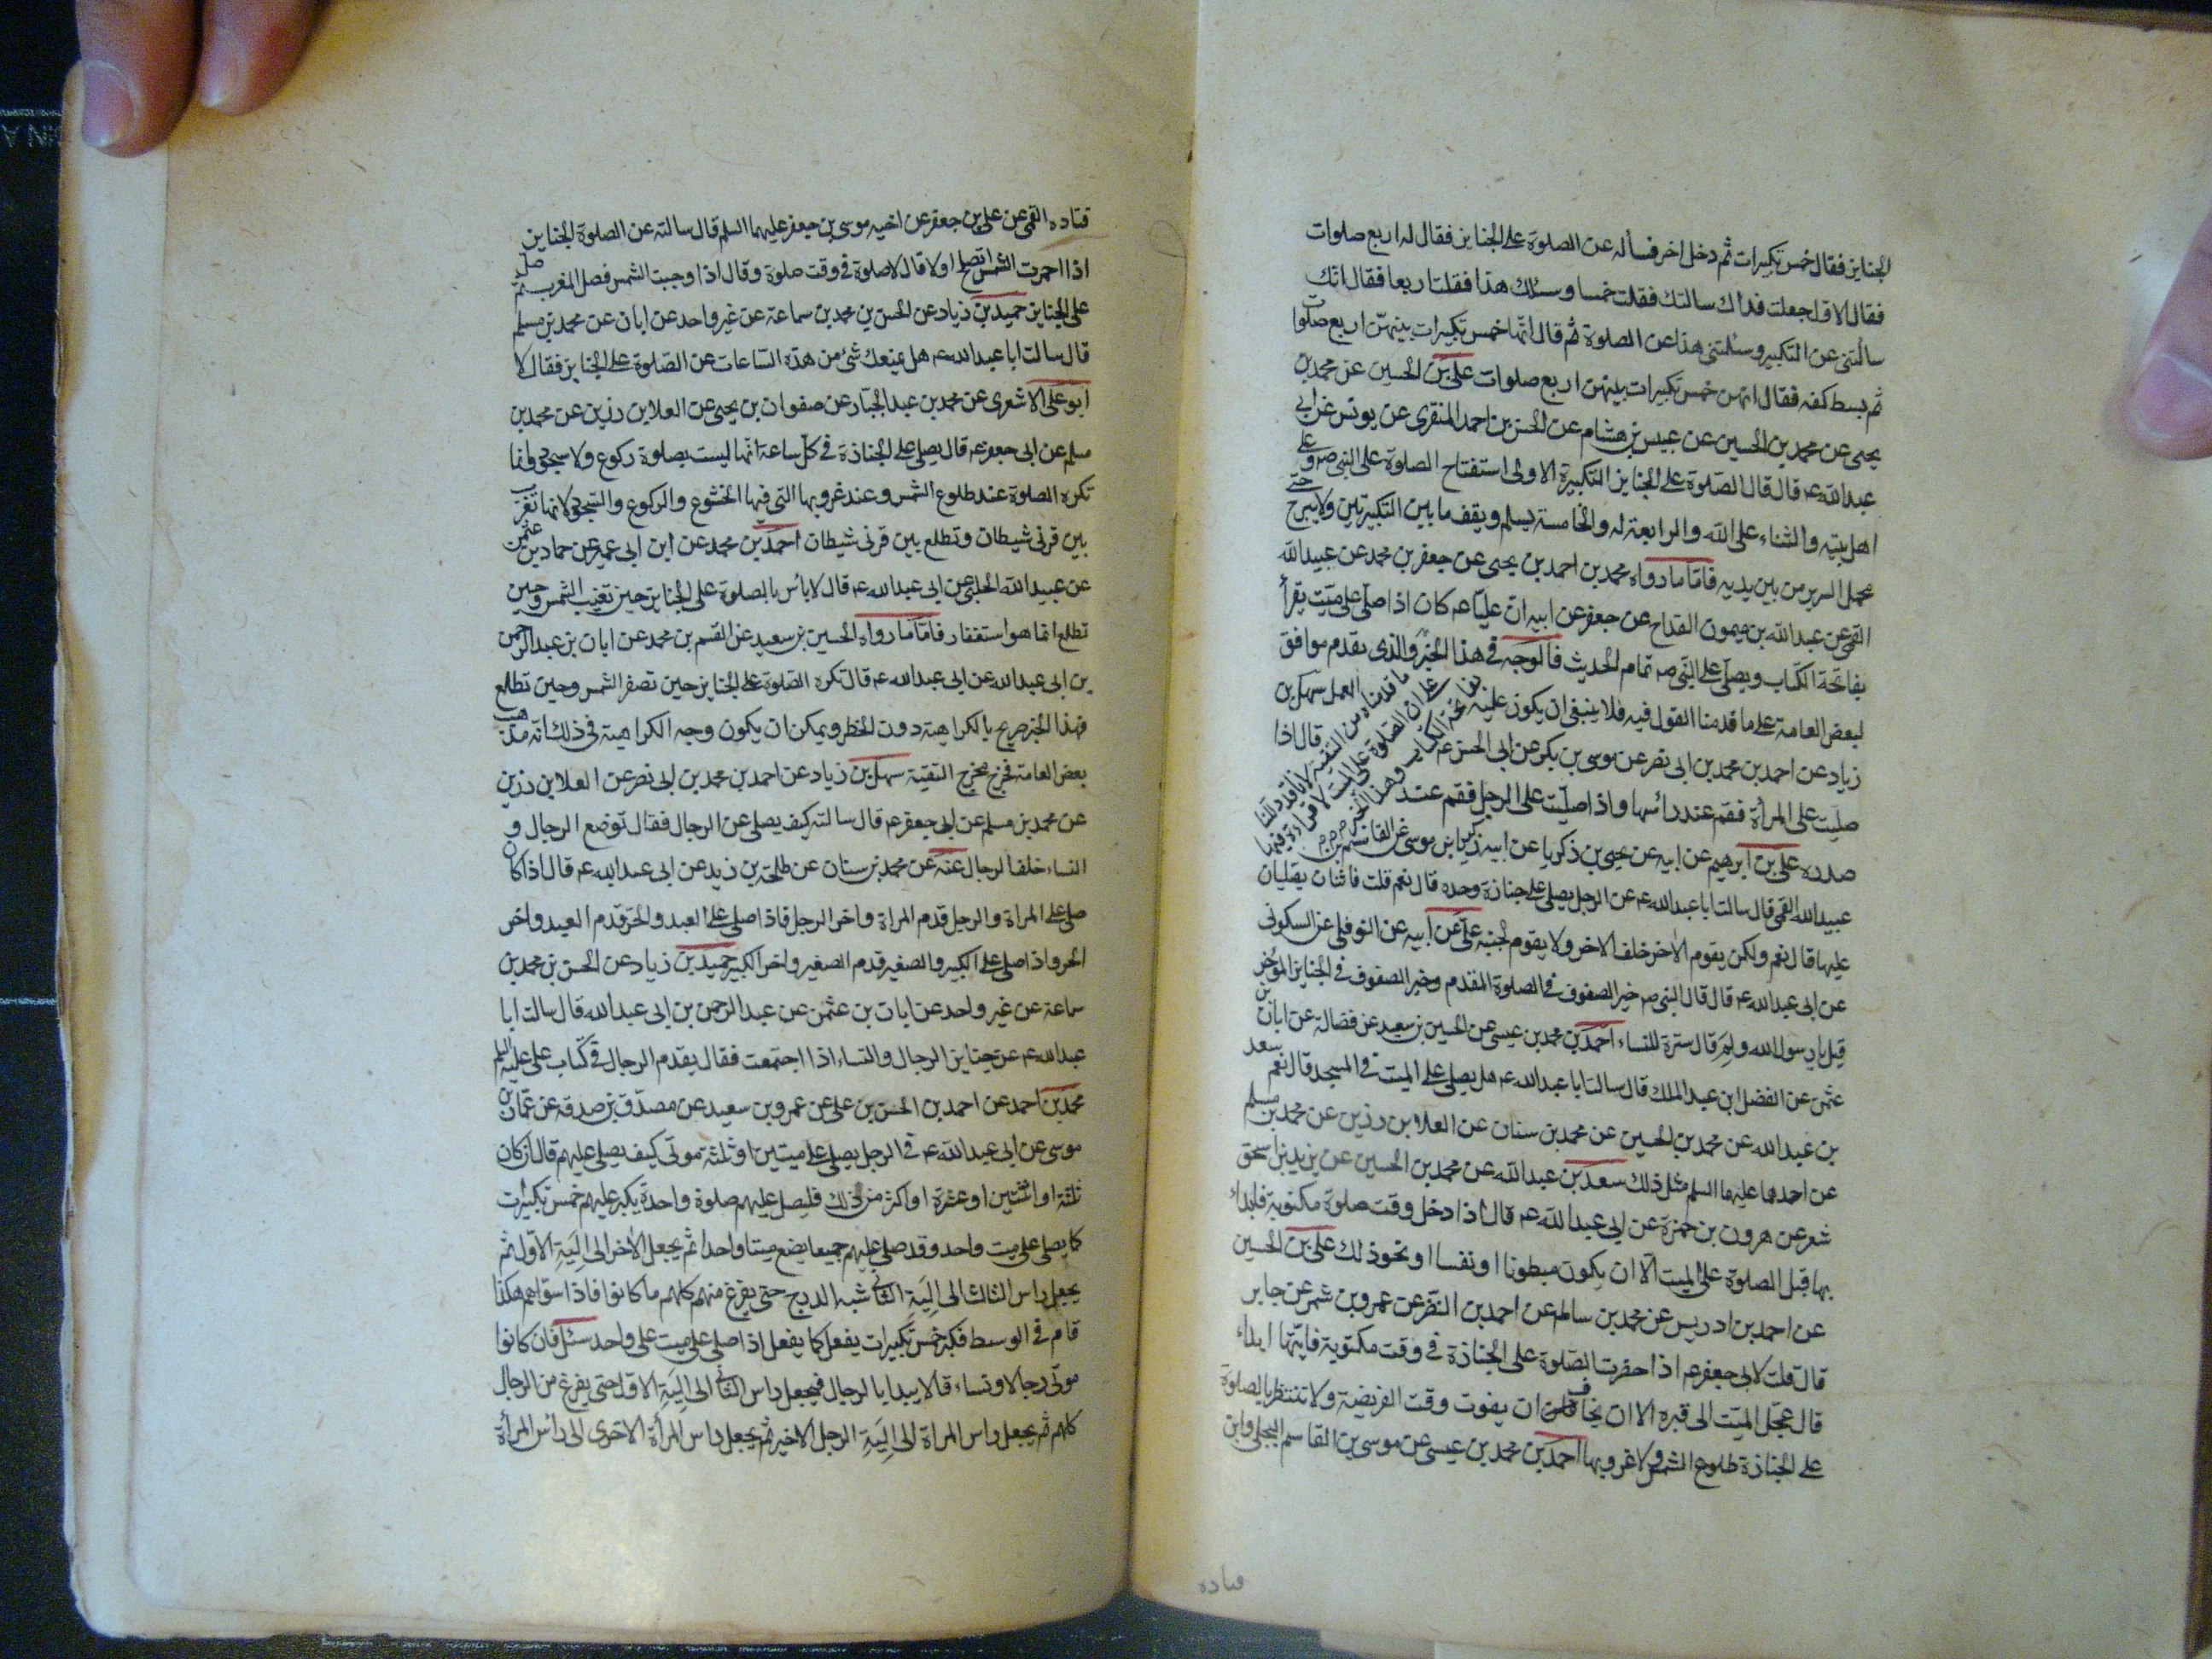 الجنايز فقال خمس تكبيرات ثم دخل اخر فسأله عن الصلوة على الجنايز فقال له اربع صلوات
فقال الاول جعلت فداك سالتك فقلت خمسا وسئلك هذا فقلت اربعا فقال انك
سألتنى عن التكبير وسئلتنى هذا عن الصلوة ثم قال انها خمس تكبيرات بينهن اربع صلوات
ثم بسط كفه فقال انهن خمس تكبيرات بينهن اربع صلوات على بن الحسين عن محمد بن
يحيى عن محمد بن الحسين عن عبيس بن هشام عن الحسن بن احمد المنقرى عن يونس عن ابى
عبد الله ع قال قال الصلوة على الجنايز التكبيرة الاولى استفتاح الصلوة على النبى ص وعلى
اهل بيته والثناء على الله والرابعة له والخامسة يسلم ويقف ما بين التكبيرتين ولا يبرح حتى
يحمل السرير من بين يديه فاما ما رواه محمد بن احمد بن يحيى عن جعفر بن محمد عن عبيد الله
القمى عن عبد الله بن ميمون القداح عن جعفر عن ابيه ان عليا ع كان اذا صلى على ميت يقرأ
بفاتحة الكتاب ويصلى على النبى ص تمام الحديث فالوجه فى هذا الخبر والذى يقدم موافق
لبعض العامة على ما قدمنا القول فيه فلا ينبغى ان يكون عليه العمل سهل بن
زياد عن احمد بن محمد بن ابى نصر عن موسى بن بكر عن ابى الحسن ع قال اذا
صليت على المرأة فقم عند رائسها واذا صليت على الرجل فقم عند
صدره على بن ابرهيم عن ابيه عن يحيى بن زكريا عن ابيه زكريا بن موسى عن القاسم بن
عبيد الله القمى قال سالت ابا عبد الله ع عن الرجل يصلى على جنازة وحده قال نعم قلت فاثنان يصليان
عليها قال نعم ولكن يقوم الاخر خلف الاخر ولا يقوم لجنبه على عن ابيه عن النوفلى عن السكونى
عن ابى عبد الله ع قال قال النبى ص خير الصفوف فى الصلوة المقدم وخير الصفوف فى الجنايز المؤخر
قيل يا رسول الله ولم قال سترة للنساء احمد بن محمد بن عيسى عن الحسين بن سعيد عن فضالة عن ابان بن
عثمن عن الفضل ابن عبد الملك قال سالت ابا عبد الله ع هل يصلى على الميت فى المسجد قال نعم سعد
بن عبد الله عن محمد بن الحسين عن محمد بن سنان عن العلا بن رزين عن محمد بن مسلم
عن احدهما عليهما السلم مثل ذلك سعد بن عبد الله عن محمد بن الحسين عن يزيد بن اسحق
شعر عن هرون بن حمزة عن ابى عبد الله ع قال اذا دخل وقت صلوة مكتوبة فابداء
بها قبل الصلوة على الميت الا ان يكون مبطونا او نفسا او نحو ذلك على بن الحسين
عن احمد بن ادريس عن محمد بن سالم عن احمد بن النضر عن عمرو بن شمر عن جابر
قال قلت لابى جعفر ع اذا حضرت الصلوة على الجنازة فى وقت مكتوبة فايتها ابداء
قال عجل الميت الى قبره الا ان يخاف ان يفوت وقت الفريضة ولا تنتظر بالصلوة
على الجنازة طلوع الشمس ولا غروبها احمد بن محمد بن عيسى عن موسى بن القاسم البجلى وابن
قتاده
قتاده القمى عن على بن جعفر عن اخيه موسى بن جعفر عليهما السلم قال سالته عن الصلوة الجنايز
اذا احمرت الشمس اتصلح اولا قال لا صلوة فى وقت صلوة وقال اذا وجبت الشمس فصل المغرب ثم صل
على الجنايز حميد بن زياد عن الحسن بن محمد بن سماعة عن غير واحد عن ابان عن محمد بن مسلم
قال سالت ابا عبد الله ع هل يمنعك شئ من هذه الساعات عن الصلوة على الجنايز فقال لا
ابو على الاشعرى عن محمد بن عبد الجبار عن صفوان بن يحيى عن العلا بن رزين عن محمد بن
مسلم عن ابى جعفر ع قال يصلى على الجنازة فى كل ساعة انها ليست بصلوة ركوع ولا سجود وانما
تكره الصلوة عند طلوع الشمس وعند غروبها التى فيها الخشوع والركوع والسجود لانها تغرب
بين قرنى شيطان وتطلع بين قرنى شيطان احمد بن محمد عن ابن ابى عمير عن حماد بن عثمن
عن عبيد الله الحلبى عن ابى عبد الله ع قال لا بأس بالصلوة على الجنايز حين تغيب الشمس وحين
تطلع انما هو استغفار فاما ما رواه الحسين بن سعيد عن القسم بن محمد عن ابان بن عبد الرحمن
بن ابى عبد الله عن ابى عبد الله ع قال تكره الصلوة على الجنايز حين تصفر الشمس وحين تطلع
فهذا الخبر صريح بالكراهية دون الحظر ويمكن ان يكون وجه الكراهية فى ذلك انه مذهب
بعض العامة فخرج مخرج التقية سهل بن زياد عن احمد بن محمد بن ابى نصر عن العلا بن رزين
عن محمد بن مسلم عن ابى جعفر ع قال سالته كيف يصلى عن الرجال فقال توضع الرجال و
النساء خلف الرجال عنه عن محمد بن سنان عن طلحة بن زيد عن ابى عبد الله ع قال اذا كان
صلى على المراة والرجل قدم المراة واخر الرجل فاذا صلى على العبد والحر قدم العبد واخر
الحر واذا صلى على الكبير والصغير قدم الصغير واخر الكبير حميد بن زياد عن الحسن بن محمد بن
سماعة عن غير واحد عن ابان بن عثمن عن عبد الرحمن بن ابى عبد الله قال سالت ابا
عبد الله ع عن جنايز الرجال والنساء اذا اجتمعت فقال يقدم الرجال فى كتاب على عليه السلم
محمد بن احمد عن احمد بن الحسن بن على عن عمرو بن سعيد عن مصدق بن صدقة عن عمار بن
موسى عن ابى عبد الله ع فى الرجل يصلى على ميتين او ثلثة موتى كيف يصلى عليهم قال ان كان
ثلثة او اثنين او عشرة او اكثر من ذلك فليصل عليهم صلوة واحدة يكبر عليهم خمس تكبيرات
كما يصلى على ميت واحد وقد صلى عليهم جميعا يضع ميتا واحدا ثم يجعل الاخر الى الية الاول ثم
يجعل راس الثالث الى الية الثانى شبه المدرج حتى يفرغ منهم كلهم ما كانوا فاذا سواهم هكذا
قام فى الوسط فكبر خمس تكبيرات يفعل كما يفعل اذا صلى على ميت على واحد سئل فان كانوا
موتى رجالا ونساء قال يبدا بالرجال فيجعل راس الثانى الى الية الاول حتى يفرغ من الرجال
كلهم ثم يجعل راس المراة الى الية الرجل الاخير ثم يجعل راس المرأة الاخرى الى راس المرأة